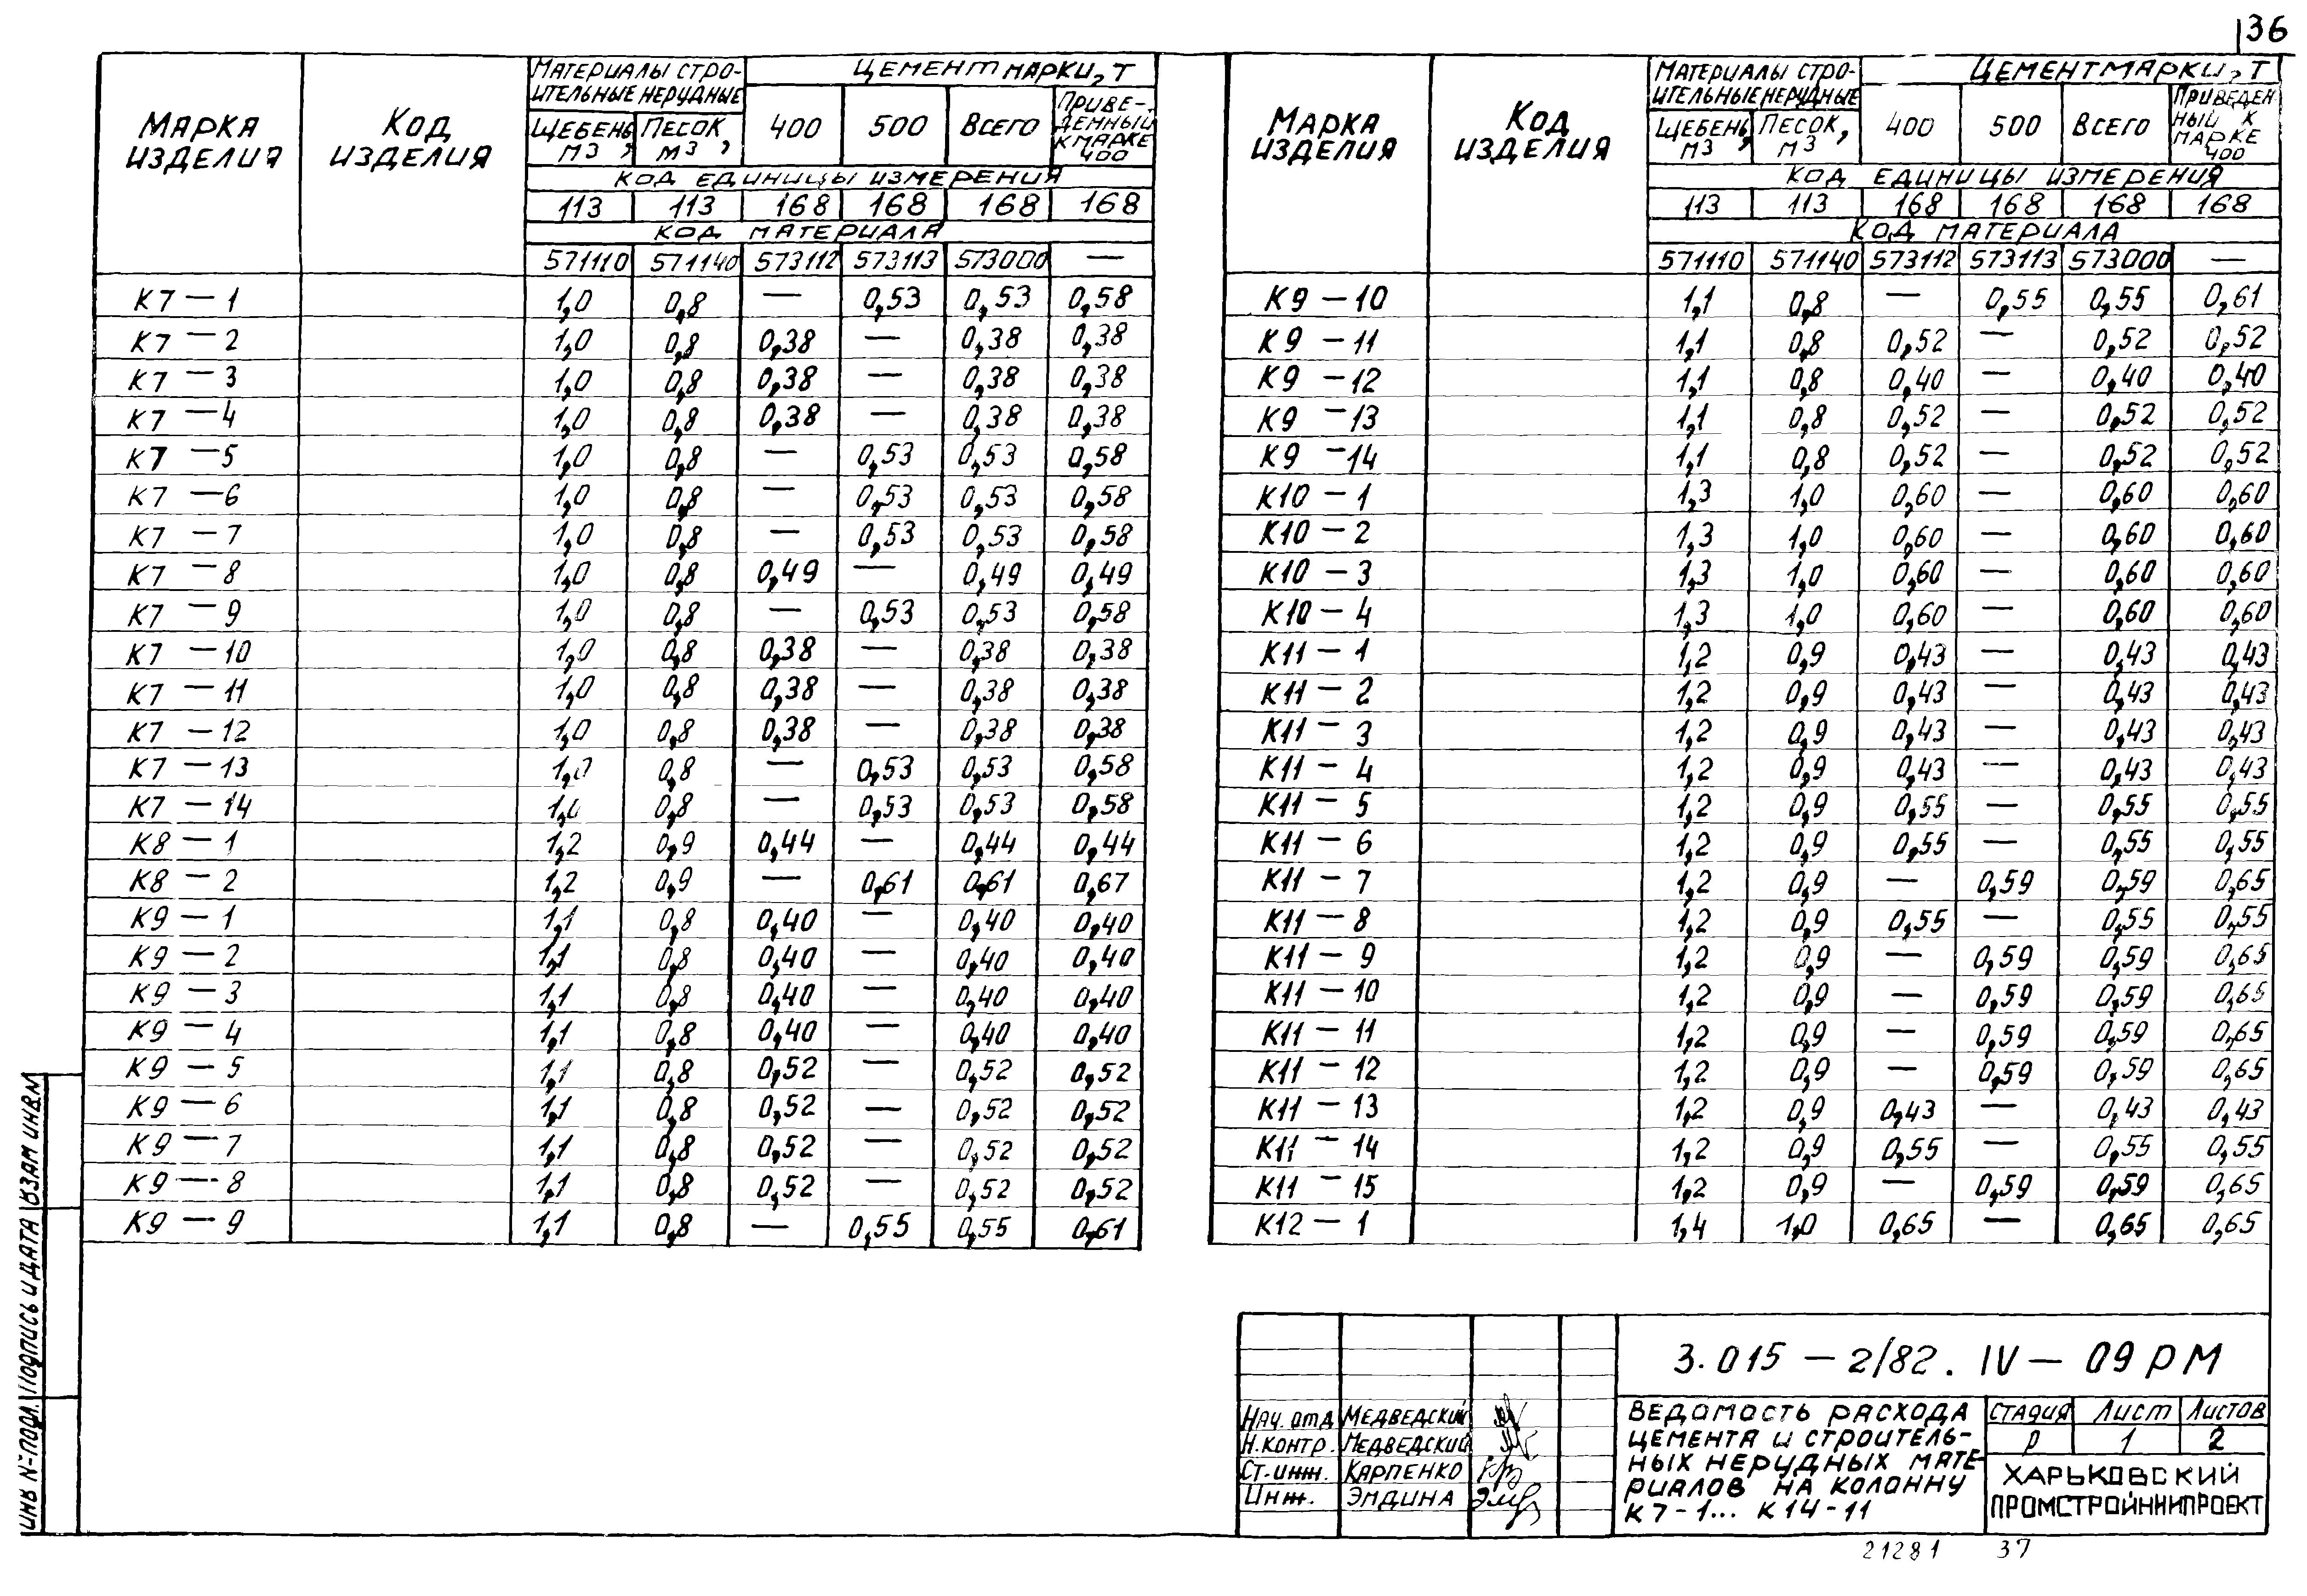 36
МАРКА ИЗДЕЛИЯ | КОД ИЗДЕЛИЯ | МАТЕРИАЛЫ СТРО-ИТЕЛЬНЫЕ НЕРУДНЫЕ | ЦЕМЕНТ МАРКИ, Т
ЩЕБЕНЬ, М3 | ПЕСОК, М3 | 400 | 500 | ВСЕГО | ПРИВЕ-ДЕННЫЙ К МАРКЕ 400
КОД ЕДИНИЦЫ ИЗМЕРЕНИЯ
113 | 113 | 168 | 168 | 168 | 168
КОД МАТЕРИАЛА
571110 | 571140 | 573112 | 573113 | 573000 | —
К7 — 1 | 1,0 | 0,8 | — | 0,53 | 0,53 | 0,58
К7 — 2 | 1,0 | 0,8 | 0,38 | — | 0,38 | 0,38
К7 — 3 | 1,0 | 0,8 | 0,38 | — | 0,38 | 0,38
К7 — 4 | 1,0 | 0,8 | 0,38 | — | 0,38 | 0,38
К7 — 5 | 1,0 | 0,8 | — | 0,53 | 0,53 | 0,58
К7 — 6 | 1,0 | 0,8 | — | 0,53 | 0,53 | 0,58
К7 — 7 | 1,0 | 0,8 | — | 0,53 | 0,53 | 0,58
К7 — 8 | 1,0 | 0,8 | 0,49 | — | 0,49 | 0,49
К7 — 9 | 1,0 | 0,8 | — | 0,53 | 0,53 | 0,58
К7 — 10 | 1,0 | 0,8 | 0,38 | — | 0,38 | 0,38
К7 — 11 | 1,0 | 0,8 | 0,38 | — | 0,38 | 0,38
К7 — 12 | 1,0 | 0,8 | 0,38 | — | 0,38 | 0,38
К7 — 13 | 1,0 | 0,8 | — | 0,53 | 0,53 | 0,58
К7 — 14 | 1,0 | 0,8 | — | 0,53 | 0,53 | 0,58
К8 — 1 | 1,2 | 0,9 | 0,44 | — | 0,44 | 0,44
К8 — 2 | 1,2 | 0,9 | — | 0,61 | 0,61 | 0,67
К9 — 1 | 1,1 | 0,8 | 0,40 | — | 0,40 | 0,40
К9 — 2 | 1,1 | 0,8 | 0,40 | — | 0,40 | 0,40
К9 — 3 | 1,1 | 0,8 | 0,40 | — | 0,40 | 0,40
К9 — 4 | 1,1 | 0,8 | 0,40 | — | 0,40 | 0,40
К9 — 5 | 1,1 | 0,8 | 0,52 | — | 0,52 | 0,52
К9 — 6 | 1,1 | 0,8 | 0,52 | — | 0,52 | 0,52
К9 — 7 | 1,1 | 0,8 | 0,52 | — | 0,52 | 0,52
К9 — 8 | 1,1 | 0,8 | 0,52 | — | 0,52 | 0,52
К9 — 9 | 1,1 | 0,8 | — | 0,55 | 0,55 | 0,61
МАРКА ИЗДЕЛИЯ | КОД ИЗДЕЛИЯ | МАТЕРИАЛЫ СТРО-ИТЕЛЬНЫЕ НЕРУДНЫЕ | ЦЕМЕНТ МАРКИ, Т
ЩЕБЕНЬ, М3 | ПЕСОК, М3 | 400 | 500 | ВСЕГО | ПРИВЕДЕН НЫЙ К МАРКЕ 400
КОД ЕДИНИЦЫ ИЗМЕРЕНИЯ
113 | 113 | 168 | 168 | 168 | 168
КОД МАТЕРИАЛА
571110 | 571140 | 573112 | 573113 | 573000 | —
К9 — 10 | 1,1 | 0,8 | — | 0,55 | 0,55 | 0,61
К9 — 11 | 1,1 | 0,8 | 0,52 | — | 0,52 | 0,52
К9 — 12 | 1,1 | 0,8 | 0,40 | — | 0,40 | 0,40
К9 — 13 | 1,1 | 0,8 | 0,52 | — | 0,52 | 0,52
К9 — 14 | 1,1 | 0,8 | 0,52 | — | 0,52 | 0,52
К10 — 1 | 1,3 | 1,0 | 0,60 | — | 0,60 | 0,60
К10 — 2 | 1,3 | 1,0 | 0,60 | — | 0,60 | 0,60
К10 — 3 | 1,3 | 1,0 | 0,60 | — | 0,60 | 0,60
К10 — 4 | 1,3 | 1,0 | 0,60 | — | 0,60 | 0,60
К11 — 1 | 1,2 | 0,9 | 0,43 | — | 0,43 | 0,43
К11 — 2 | 1,2 | 0,9 | 0,43 | — | 0,43 | 0,43
К11 — 3 | 1,2 | 0,9 | 0,43 | — | 0,43 | 0,43
К11 — 4 | 1,2 | 0,9 | 0,43 | — | 0,43 | 0,43
К11 — 5 | 1,2 | 0,9 | 0,55 | — | 0,55 | 0,55
К11 — 6 | 1,2 | 0,9 | 0,55 | — | 0,55 | 0,55
К11 — 7 | 1,2 | 0,9 | — | 0,59 | 0,59 | 0,65
К11 — 8 | 1,2 | 0,9 | 0,55 | — | 0,55 | 0,55
К11 — 9 | 1,2 | 0,9 | — | 0,59 | 0,59 | 0,65
К11 — 10 | 1,2 | 0,9 | — | 0,59 | 0,59 | 0,65
К11 — 11 | 1,2 | 0,9 | — | 0,59 | 0,59 | 0,65
К11 — 12 | 1,2 | 0,9 | — | 0,59 | 0,59 | 0,65
К11 — 13 | 1,2 | 0,9 | 0,43 | — | 0,43 | 0,43
К11 — 14 | 1,2 | 0,9 | 0,55 | — | 0,55 | 0,55
К11 — 15 | 1,2 | 0,9 | — | 0,59 | 0,59 | 0,65
К12 — 1 | 1,4 | 1,0 | 0,65 | — | 0,65 | 0,65
ИНВ №ПОДЛ. ПОДПИСЬ И ДАТА ВЗАМ ИНВ.№
3.015 — 2/82. IV — 09 РМ
НАЧ. ОТД МЕДВЕДСКИЙ
Н.КОНТР. МЕДВЕДСКИЙ
СТ.ИНЖ. КАРПЕНКО
ИНЖ. ЭМДИНА
ВЕДОМОСТЬ РАСХОДА
ЦЕМЕНТА И СТРОИТЕЛЬ-
НЫХ НЕРУДНЫХ МАТЕ-
РИАЛОВ НА КОЛОННУ
К7-1... К14-11
СТАДИЯ ЛИСТ ЛИСТОВ
Р 1 2
ХАРЬКОВСКИЙ
ПРОМСТРОЙНИИПРОЕКТ
21281 37